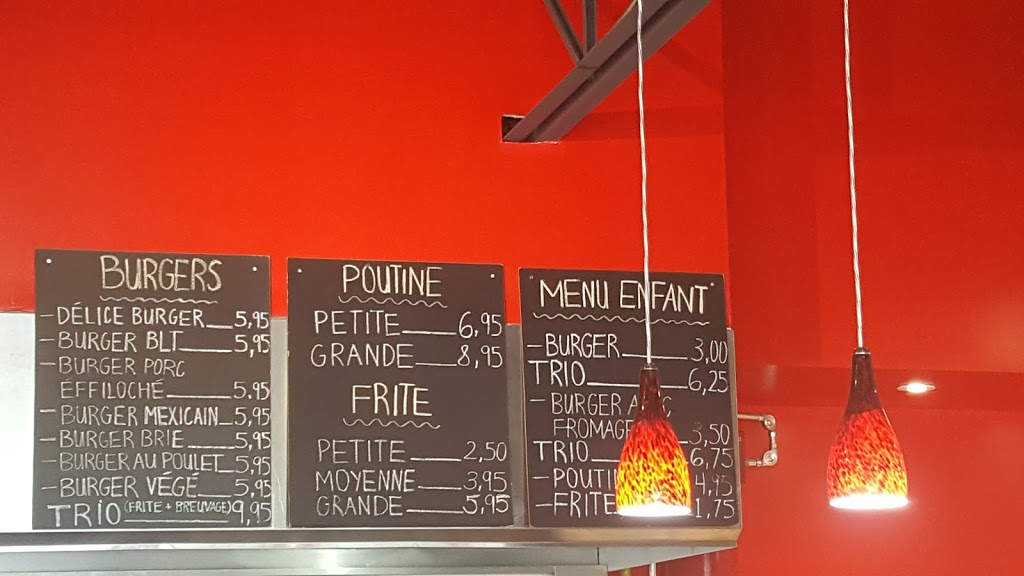 BURGERS
- DÉLICE BURGER 5,95
- BURGER BLT 5,95
- BURGER PORC
EFFILOCHÉ 5.95
- BURGER MEXICAIN 5,95
- BURGER BRIE 5,95
- BURGER AU POULET 5,95
- BURGER VÉGÉ 5,95
TRIO (FRITE + BREUVAGE) 9,95
POUTINE
PETITE 6,95
GRANDE 8,95
FRITE
PETITE 2,50
MOYENNE 3,95
GRANDE 5,95
MENU ENFANT
- BURGER 3,00
TRIO 6,25
- BURGER
FROMAGE 3,50
TRIO 6,75
- POUTIN 4,45
- FRITE 1,75